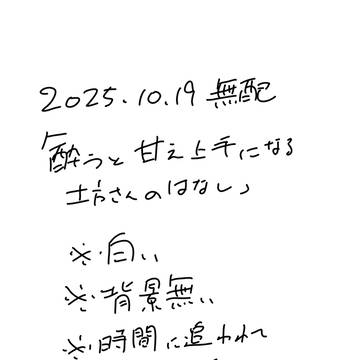 2025.10.19 無配
「酔うと甘え上手になる
坊さんのはなし」
※白い
※背景無い
※時間に追われて